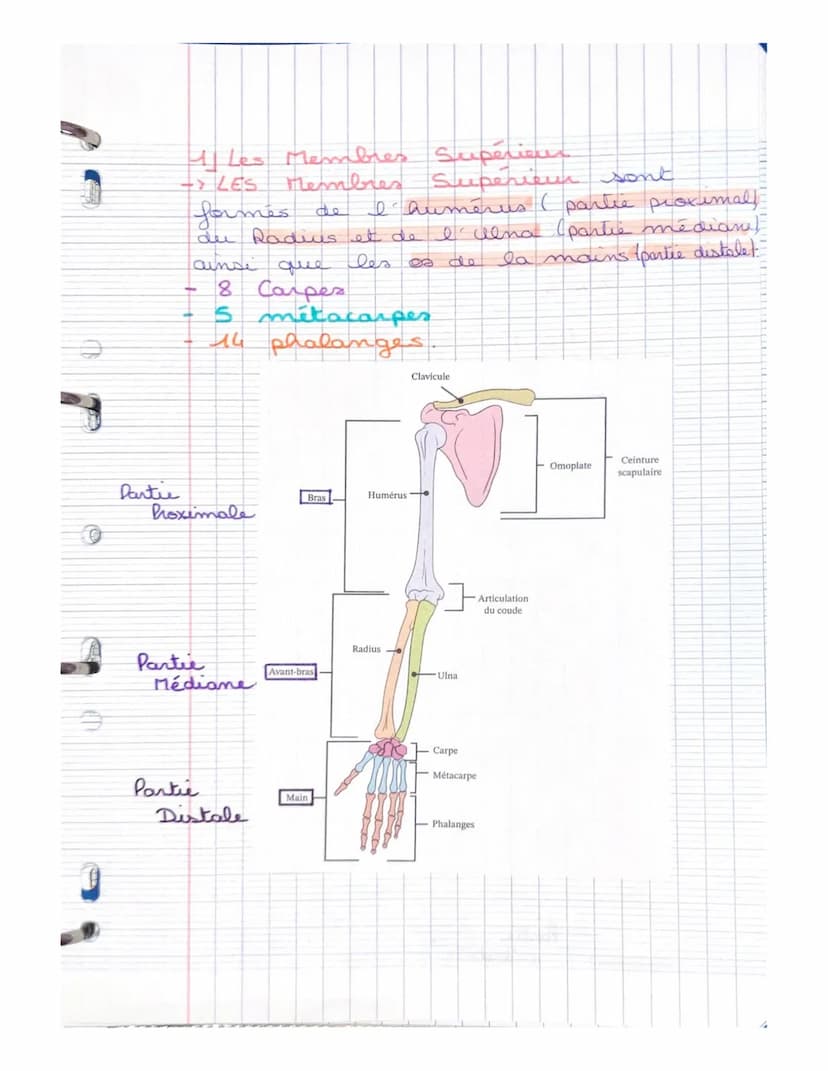 1) Les Membres Supérieur
-> LES Membres Supérieur sont
formés de l'humérus ( partie proximal)
du Radius et de l'ulna (partie médiane)
ainsi que les os de la mains (partie distale).
- 8 Carpes
- 5 métacarpes
- 14 phalanges.
Clavicule
Omoplate
Ceinture
scapulaire
Partie
Proximale
Bras
Humérus
Articulation
du coude
Radius
Partie
Médiane
Avant-bras
Ulna
Carpe
Métacarpe
Partie
Distale
Main
Phalanges